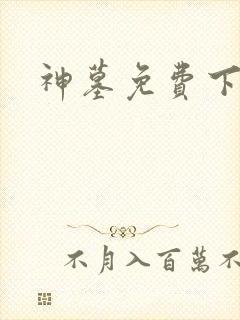 神墓免費下
不月入百萬不